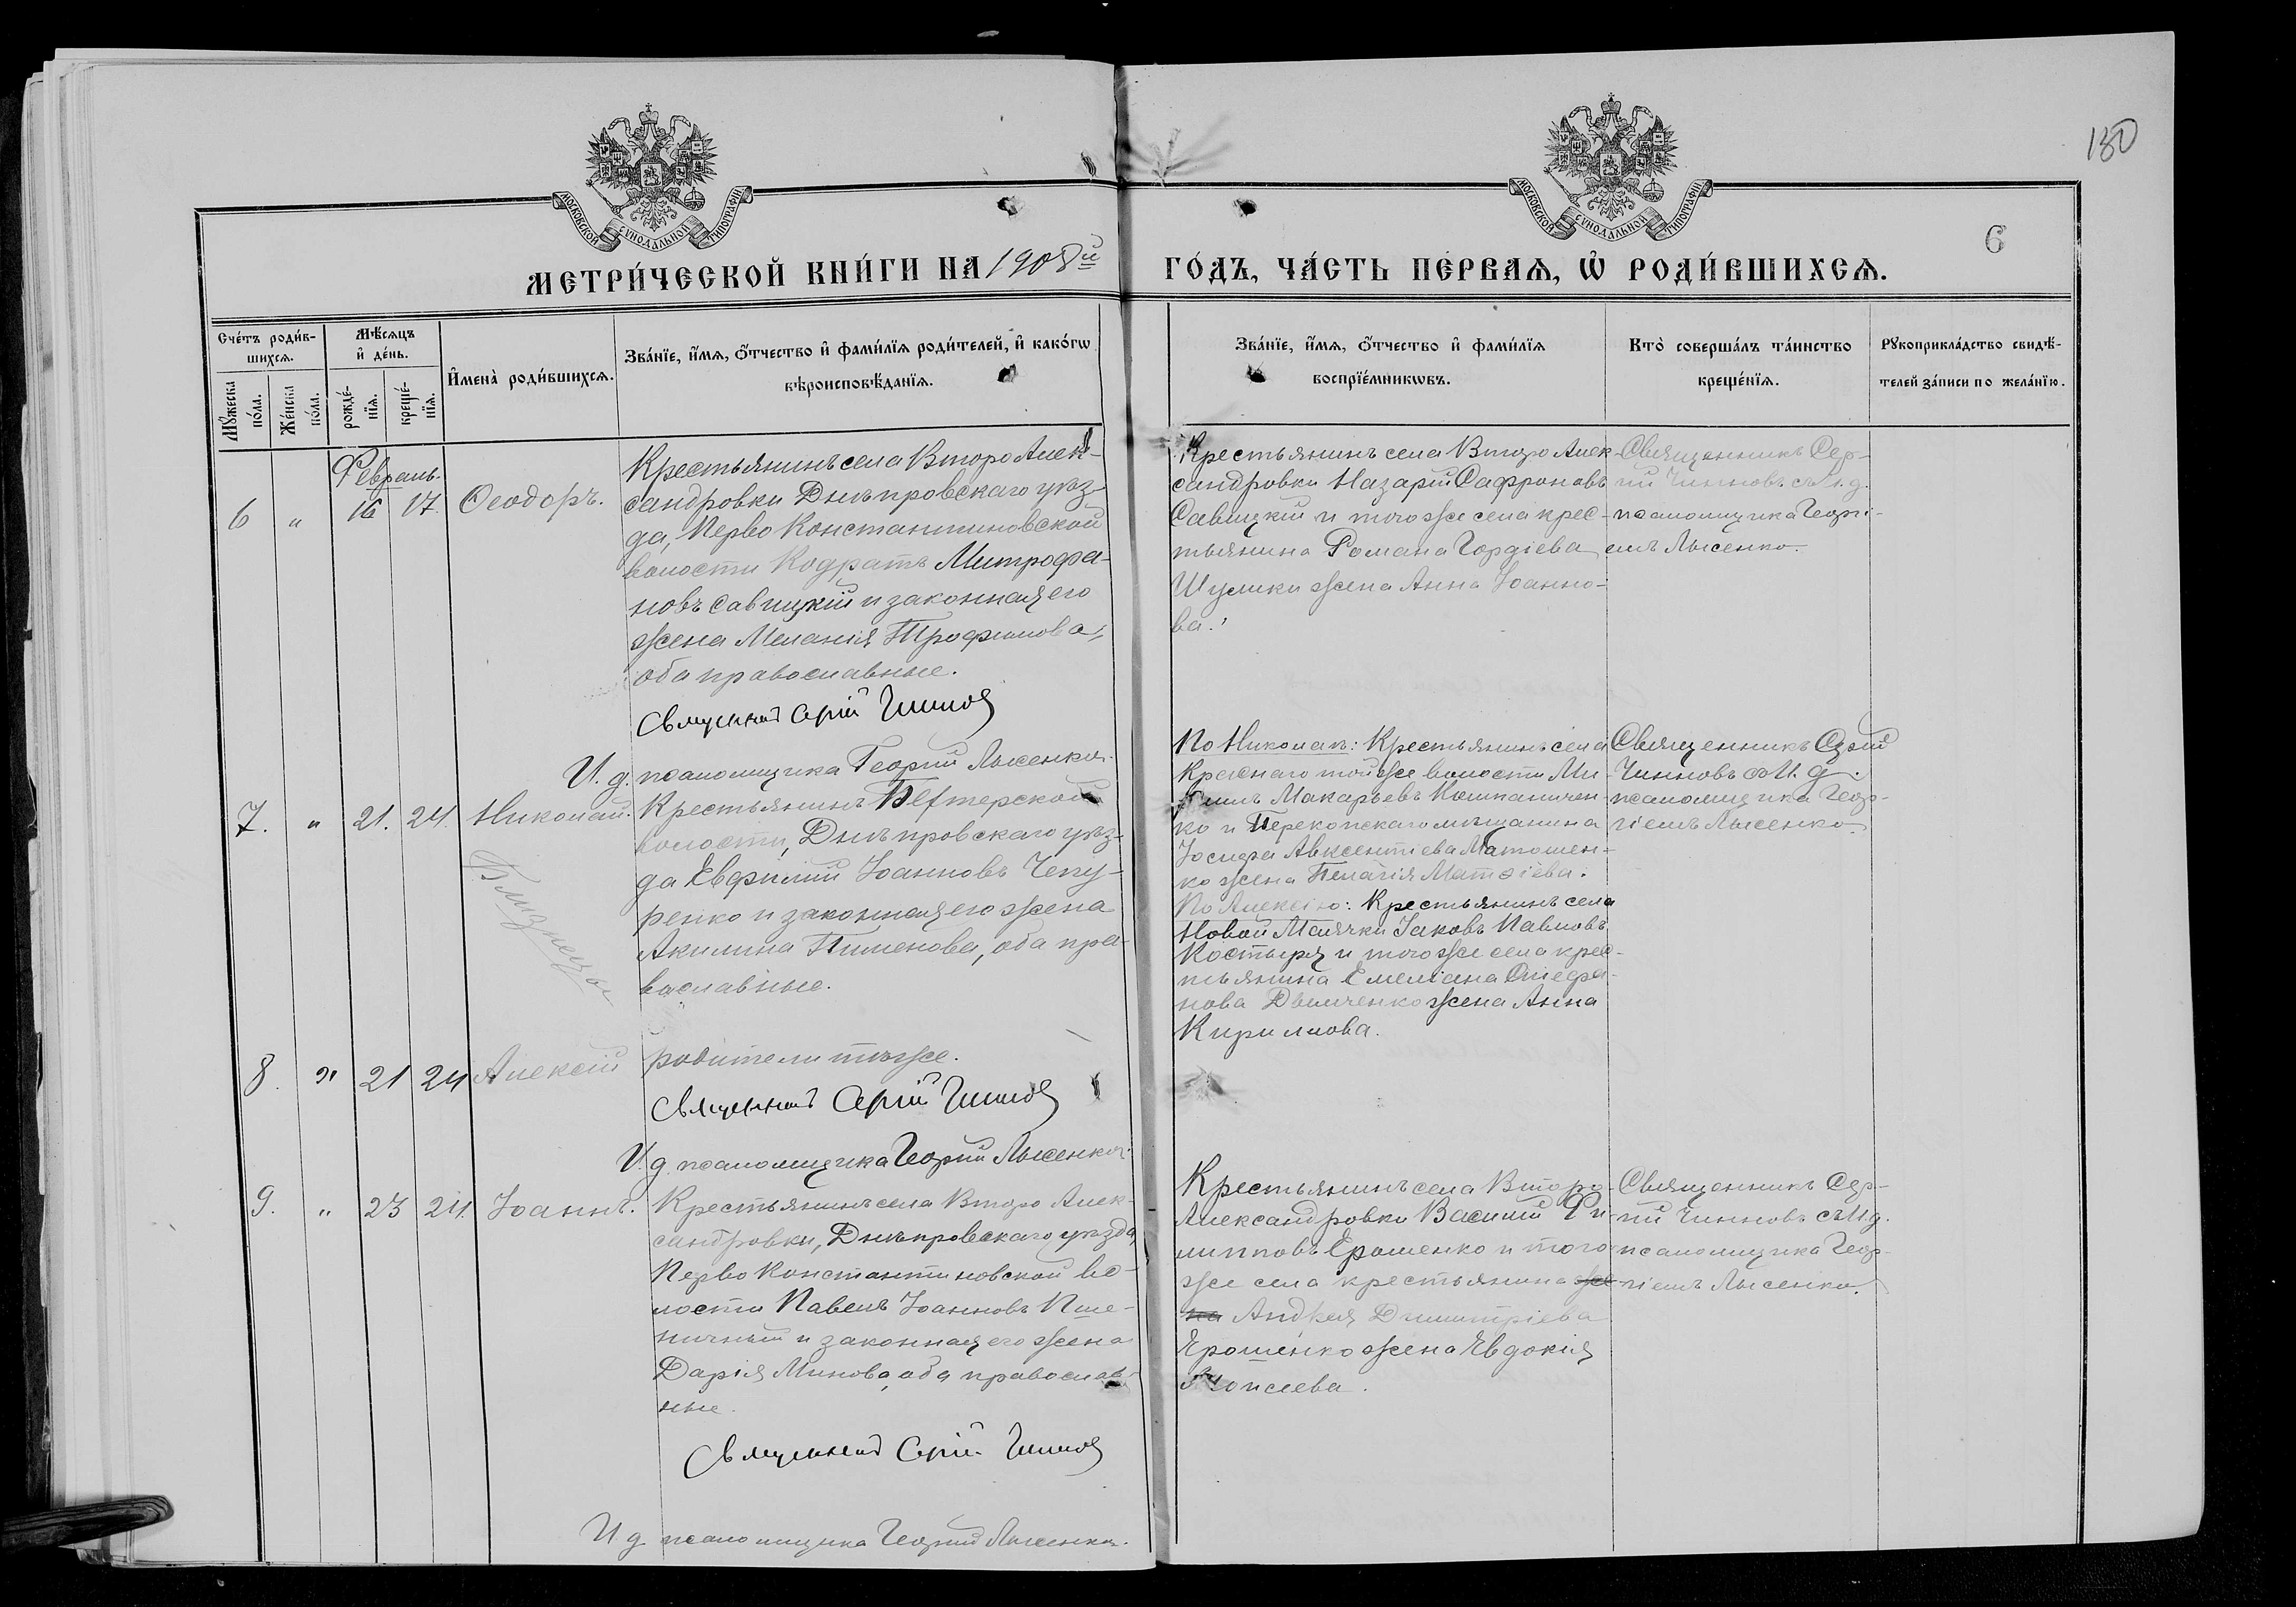 130
МОСКОВСКОЙ СУНОДАЛЬНОЙ ТИПОГРАФІИ
МОСКОВСКОЙ СУНОДАЛЬНОЙ ТИПОГРАФІИ
6
МЕТРИ́ЧЕСКОЙ КНИ́ГИ НА 1908й ГО́ДЪ, ЧА́СТЬ ПЕ́РВАЯ, Ѿ РОДИ́ВШИХСЯ.
Сче́тъ роди́в-
шихсѧ.
Мꙋжеска по́ла.
Же́нска по́ла.
Мѣ́сѧцъ
и҆ де́нь.
рожде́-
нїѧ.
креще́-
нїѧ.
И҆мена̀ роди́вшихсѧ.
Зва́нїе, и҆́мѧ, ѻ҆́тчество и҆ фами́лїѧ роди́телей, и҆ како́гѡ
вѣроисповѣ́данїѧ.
Зва́нїе, и҆́мѧ, ѻ҆́тчество и҆ фами́лїѧ
воспрїе́мникѡвъ.
Кто̀ соверша́лъ та́инство
креще́нїѧ.
Рꙋкоприкла́дство свидѣ́-
телей за́писи по жела́нїю.
Февраль.
6 " 16 17. Ѳеодоръ.
Крестьянинъ села Второ Алек-
сандровки Днѣпровскаго уѣз-
да, Перво Константиновской
волости Кодратъ Митрофа-
новъ Савицкій и законная его
жена Меланія Трофимова,
оба православные.
Священникъ Сергій Чинновъ
И. д. псаломщика Георгій Лысенко.
Крестьянинъ села Второ Алек-
сандровки Назарій Сафроновъ
Савицкій и того же села крес-
тьянина Романа Гордіева
Шулики жена Анна Іоанно-
ва.
Священникъ Сер-
гій Чинновъ съ И. д.
псаломщика Георгі-
емъ Лысенко.
7. " 21. 24. Николай.
Близнецы
Крестьянинъ
волости, Днѣпровскаго уѣз-
да Евфимій Іоанновъ Чепу-
ренко и законная его жена
Акилина Пименова, оба пра-
вославные.
По Николаѣ: Крестьянинъ села
Краснаго той же волости Ми-
Макарьевъ
ко и Перекопскаго мѣщанина
Іосифа Авксентіева Матюшен-
ко жена Пелагія Матѳіева.
По Алексію: Крестьянинъ села
Новой Маячки Іаковъ Павловъ
Костыря и того же села крес-
тьянина Емеліана Стефа-
нова Демченко жена Анна
Кириллова.
Священникъ Сергій
Чинновъ съ И. д.
псаломщика Геор-
гіемъ Лысенко.
8. " 21 24 Алексій
родители тѣ же.
Священникъ Сергій Чинновъ
И. д. псаломщика Георгій Лысенко.
9. " 23 24. Іоаннъ.
Крестьянинъ села Второ Алек-
сандровки, Днѣпровскаго уѣзда,
Перво Константиновской во-
лости Павелъ Іоанновъ Пше-
ничный и законная его жена
Дарія Минова, оба православ-
ные.
Священникъ Сергій Чинновъ
И д псаломщика Георгій Лысенко.
Крестьянинъ села Второ-
Александровки Василій Фи-
липповъ Ерошенко и того
же села крестьянина же-
на Андрея Димитріева
Ярошенко жена Евдокія
Моисеева.
Священникъ Сер-
гій Чинновъ съ И. д.
псаломщика Геор-
гіемъ Лысенко.